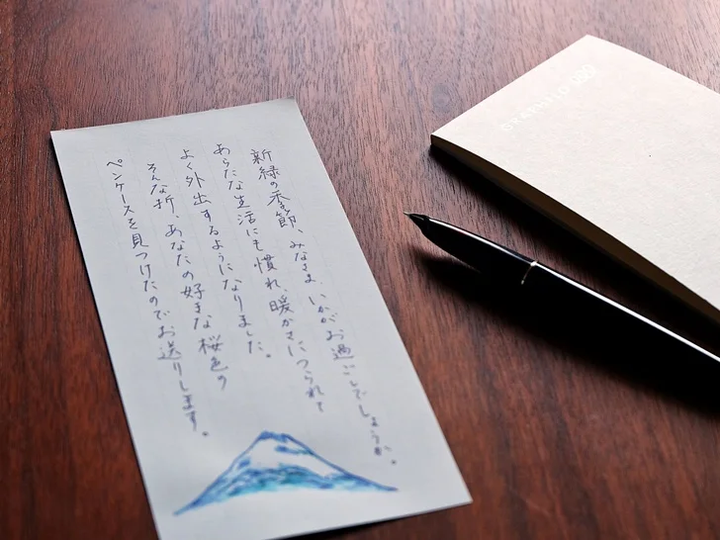 新緑の季節、みなさま、いかがお過ごしでしょうか。
あらたな生活にも慣れ、暖かさにつられて
よく外出するようになりました。
そんな折、あなたの好きな桜色の
ペンケースを見つけたのでお送りします。